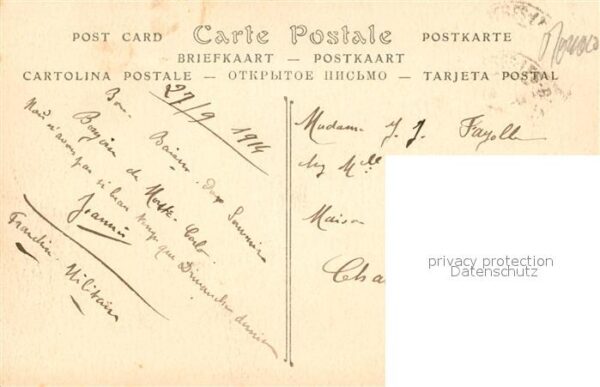 POST CARD Carte Postale POSTKARTE
BRIEFKAART — POSTKAART
CARTOLINA POSTALE — ОТКРЫТОЕ ПИСЬМО — TARJETA POSTAL
Monaco
27/9 1914
Bon Baiser Doux Souvenir
Bonjour de Monte-Carlo
Nous n'avons pas si beau temps que Dimanche dernier
Jeannis
Franchise Militaire
Madame J. J. Fayolle
chez Mlle
Maison
Cha
privacy protection
Datenschutz